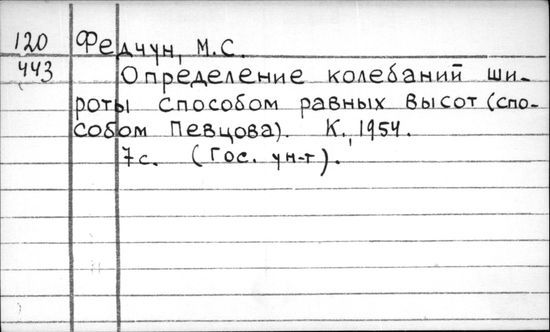 120 Федчун, М.С.
443 Определение колебаний ши-
роты способом равных высот (спо-
собом Певцова). К., 1954.
7с. (Гос. ун-т).